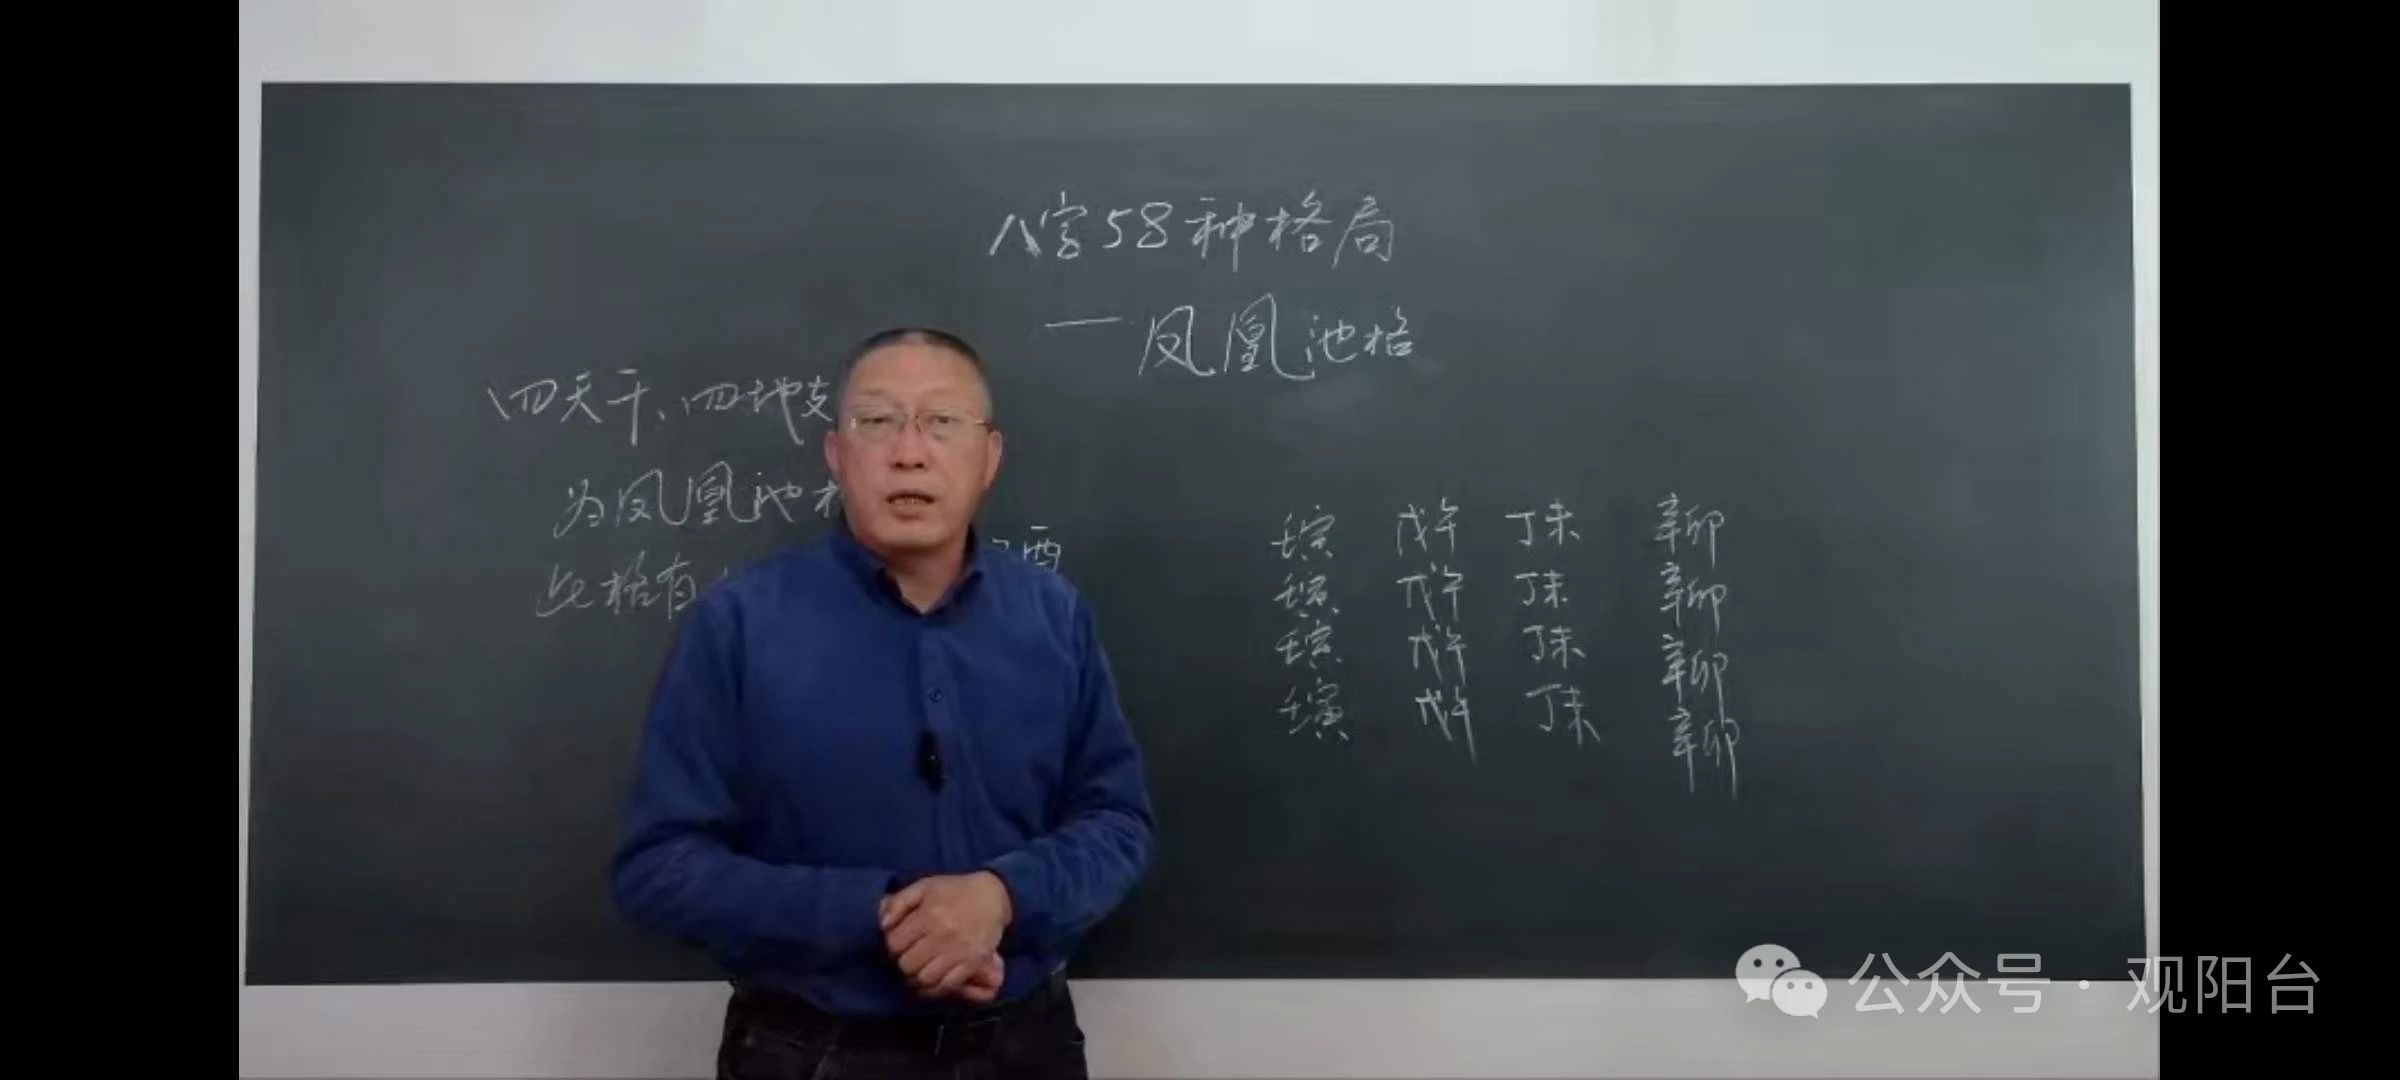 八字58种格局
—凤凰池格
四天干、四地支
为凤凰池格
此格有
酉
壬寅 戊午 丁未 辛卯
壬寅 戊午 丁未 辛卯
壬寅 戊午 丁未 辛卯
壬寅 戊午 丁未 辛卯
公众号·观阳台